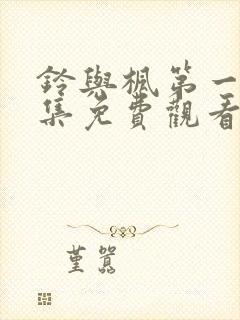 鈴與楓第一
集免費觀看
堇囂